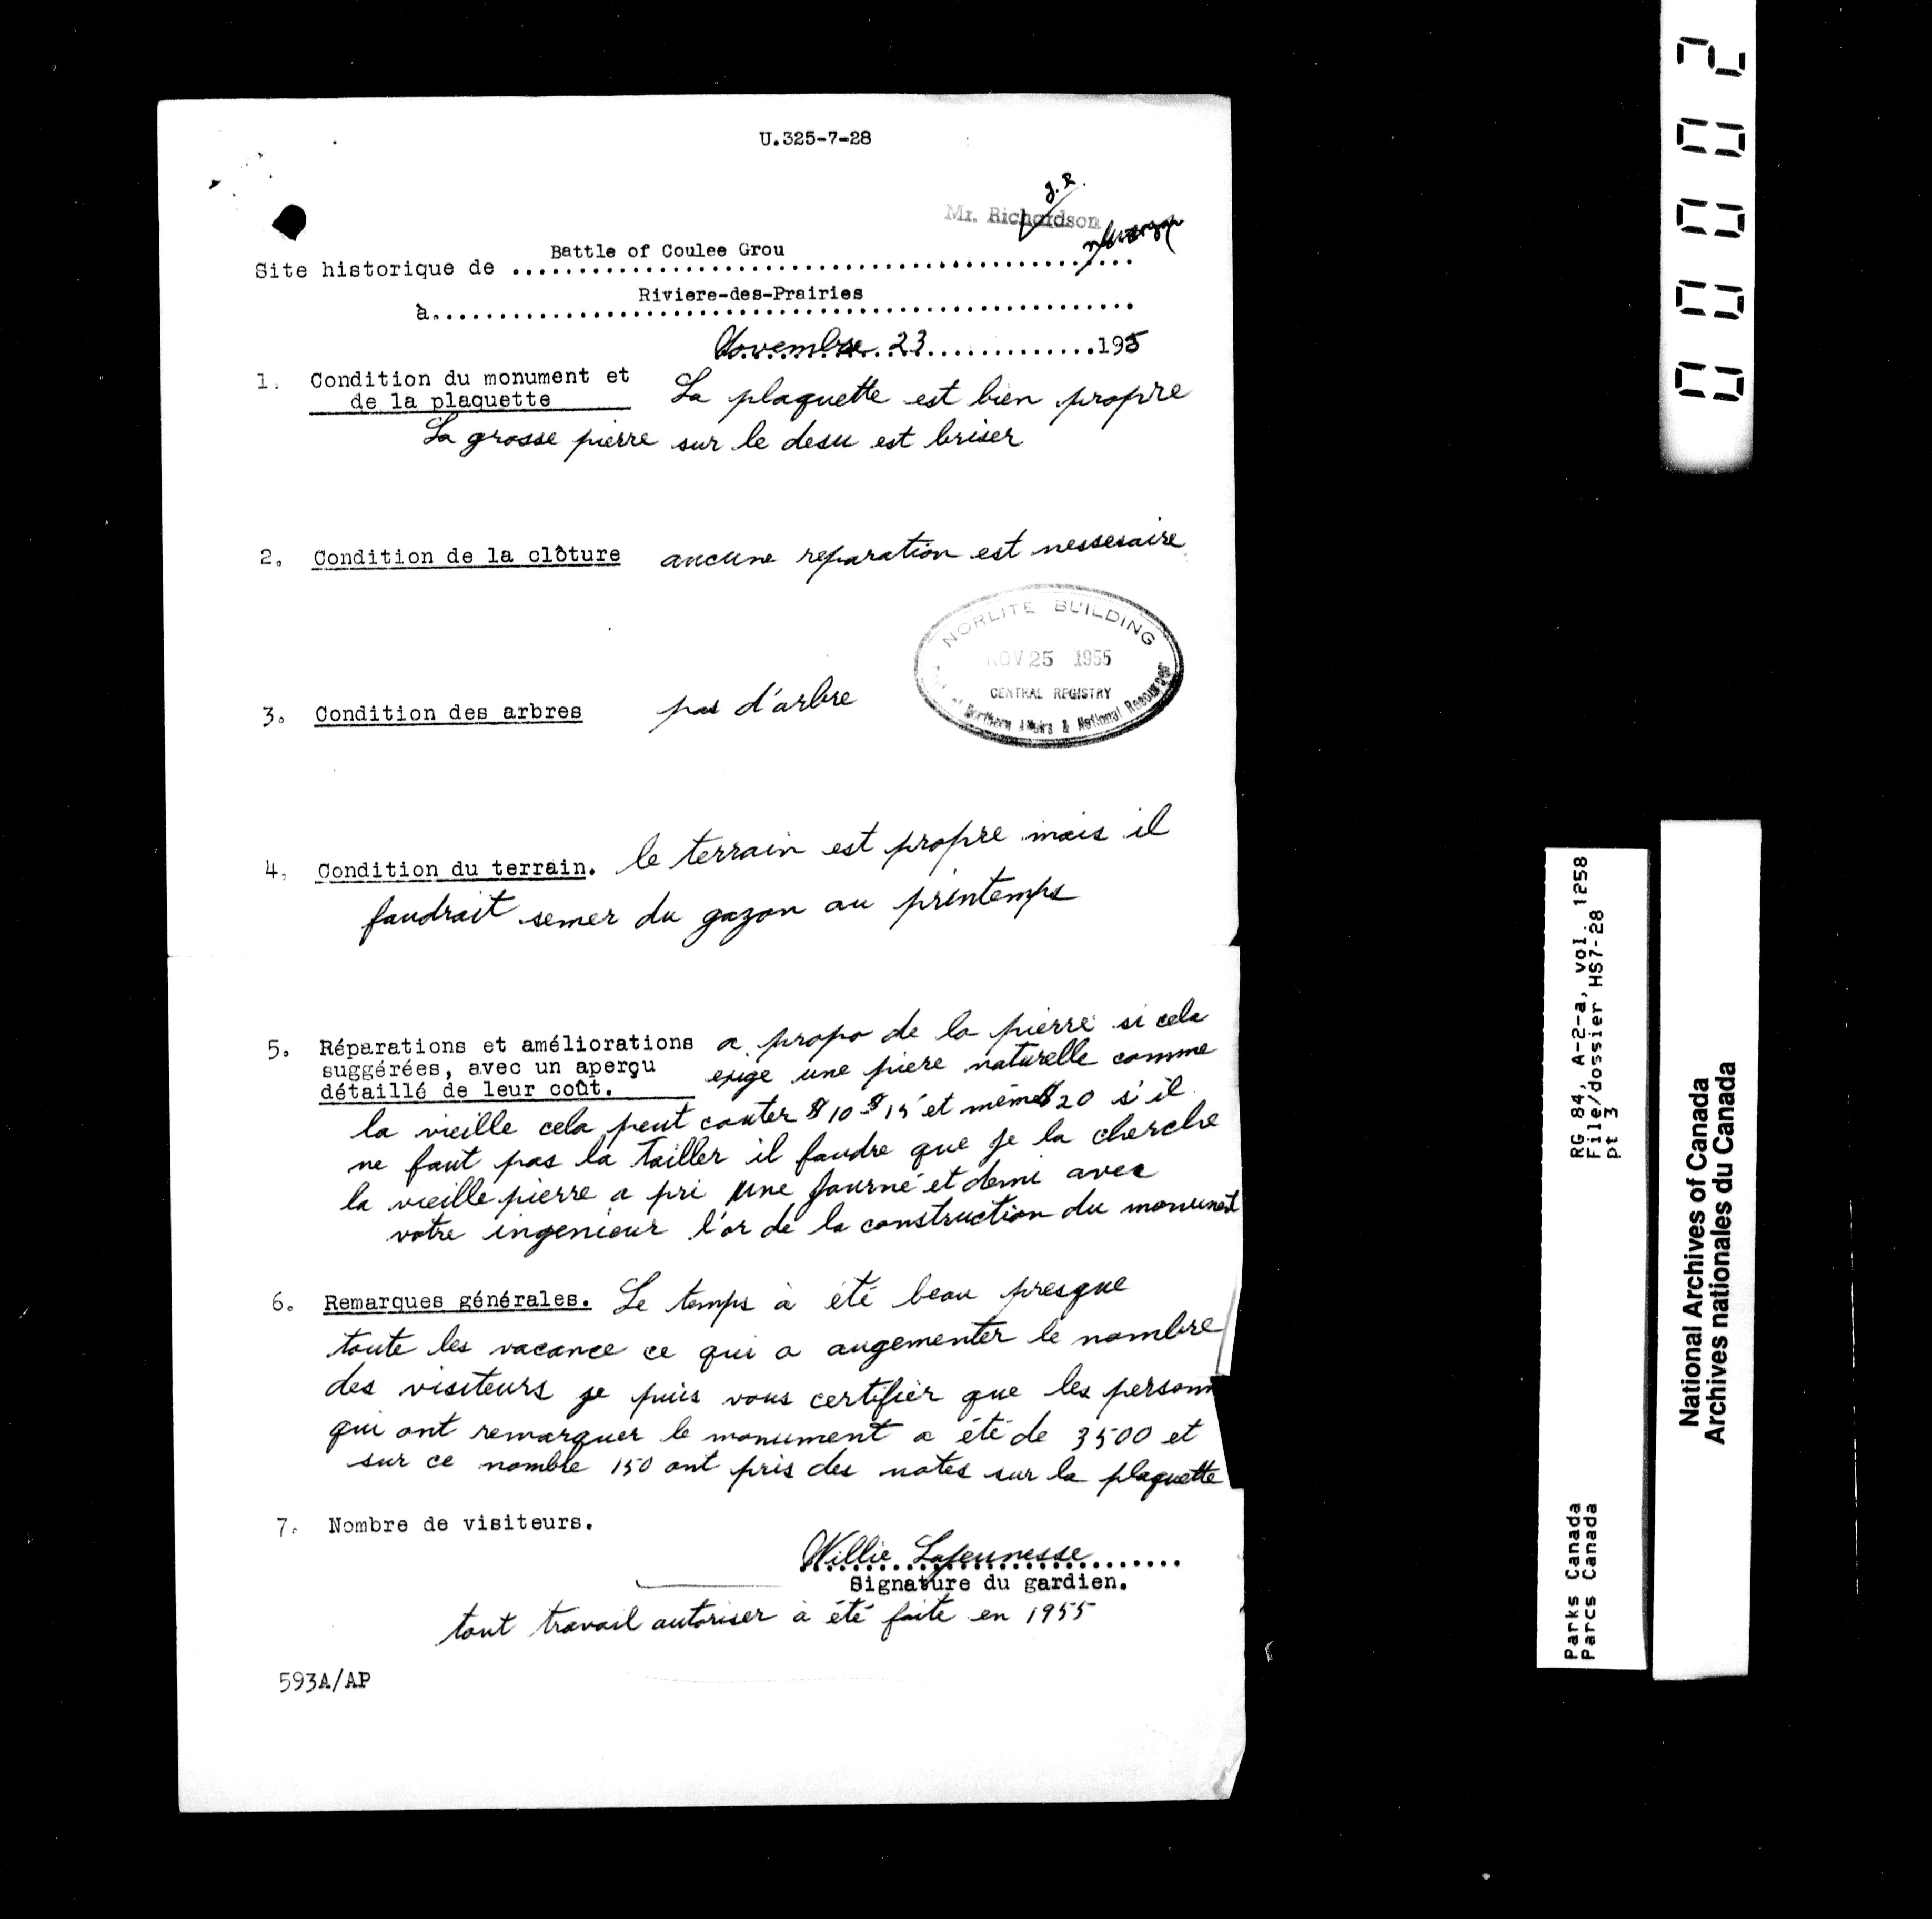 U.325-7-28
J.R.
Mr. Richardson
Battle of Coulee Grou
Site historique de ..............................
Riviere-des-Prairies
à..............................
Novembre 23 ..............195
1. Condition du monument et La plaquette est bien propre
de la plaquette
La grosse pierre sur le desu est briser
2. Condition de la clôture aucune reparation est nessesaire
NORLITE BUILDING
NOV 25 1955
CENTRAL REGISTRY
of Northern Affairs & National Resources
3. Condition des arbres pas d'arbre
4. Condition du terrain. le terrain est propre mais il
faudrait semer du gazon au printemps
5. Réparations et améliorations a propo de la pierre si cela
suggérées, avec un aperçu exige une piere naturelle comme
détaillé de leur coût.
la vieille cela peut couter $10 $15 et même $20 s'il
ne faut pas la tailler il faudre que je la cherche
la vieille pierre a pri une journé et demi avec
votre ingenieur l'or de la construction du monument
6. Remarques générales. Le temps à été beau presque
toute les vacance ce qui a augementer le nombre
des visiteurs je puis vous certifier que les personn
qui ont remarquer le monument a été de 3500 et
sur ce nombre 150 ont pris des notes sur la plaquette
7. Nombre de visiteurs.
Willie Lajeunesse
Signature du gardien.
tout travail autoriser à été faite en 1955
593A/AP
00002
RG 84, A-2-a, vol. 1258
File/dossier HS7-28
pt 3
Parks Canada
Parcs Canada
National Archives of Canada
Archives nationales du Canada